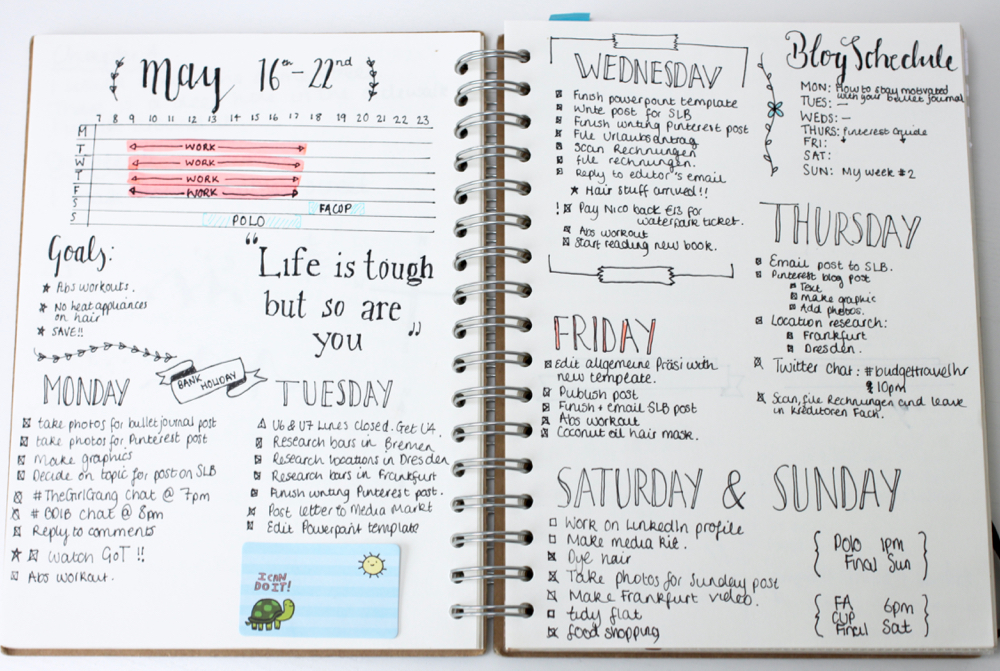 May 16th-22nd
7 8 9 10 11 12 13 14 15 16 17 18 19 20 21 22 23
M
T WORK
W WORK
T WORK
F WORK
S FACUP
S POLO
Goals:
★ Abs workouts.
★ No heat appliances
on hair
★ SAVE!!
"Life is tough
but so are
you"
BANK HOLIDAY
MONDAY
take photos for bullet journal post
take photos for Pinterest post
Make graphics
Decide on topic for post on SLB
#TheGirlGang chat @ 7pm
chat @ 8pm
Reply to comments
★ Watch GoT !!
Abs workout.
TUESDAY
U6 & U7 Lines closed. Get U4.
Research bars in Bremen
Research locations in Dresden
Research bars in Frankfurt
Finish writing Pinterest post.
Post letter to Media Markt
Edit Powerpoint template
I CAN
DO IT!
WEDNESDAY
Finish powerpoint template
Write post for SLB
Finish writing Pinterest post
File Urlaubsantrag
Scan Rechnungen
File rechnungen.
Reply to editor's email
★ Hair stuff arrived!!
! Pay Nico back €13 for
waterpark ticket.
Abs workout
Start reading new book.
FRIDAY
Edit allgemeine Präsi with
new template.
Publish post
Finish + email SLB post
Abs workout
Coconut oil hair mask.
Blog Schedule
MON: How to stay motivated
with your bullet journal
TUES: —
WEDS: —
THURS: Pinterest Guide
FRI:
SAT:
SUN: My week #2
THURSDAY
Email post to SLB.
Pinterest blog post
Text
Make graphic
Add photos.
Location research:
Frankfurt
Dresden.
Twitter chat: #budgettravelhr
10pm
Scan, file Rechnungen and leave
in Kreditoren Fach.
SATURDAY & SUNDAY
Work on LinkedIn profile
Make media kit.
Dye hair
Take photos for Sunday post
Make Frankfurt video.
tidy flat
food shopping
Polo 1pm
Final Sun
FA 6pm
CUP
Final Sat